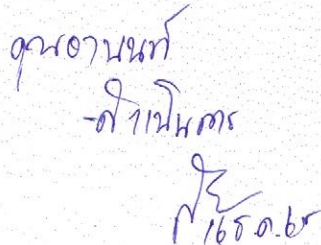 คุณอานนท์
-ดำเนินการ
16 ธ.ค. 65